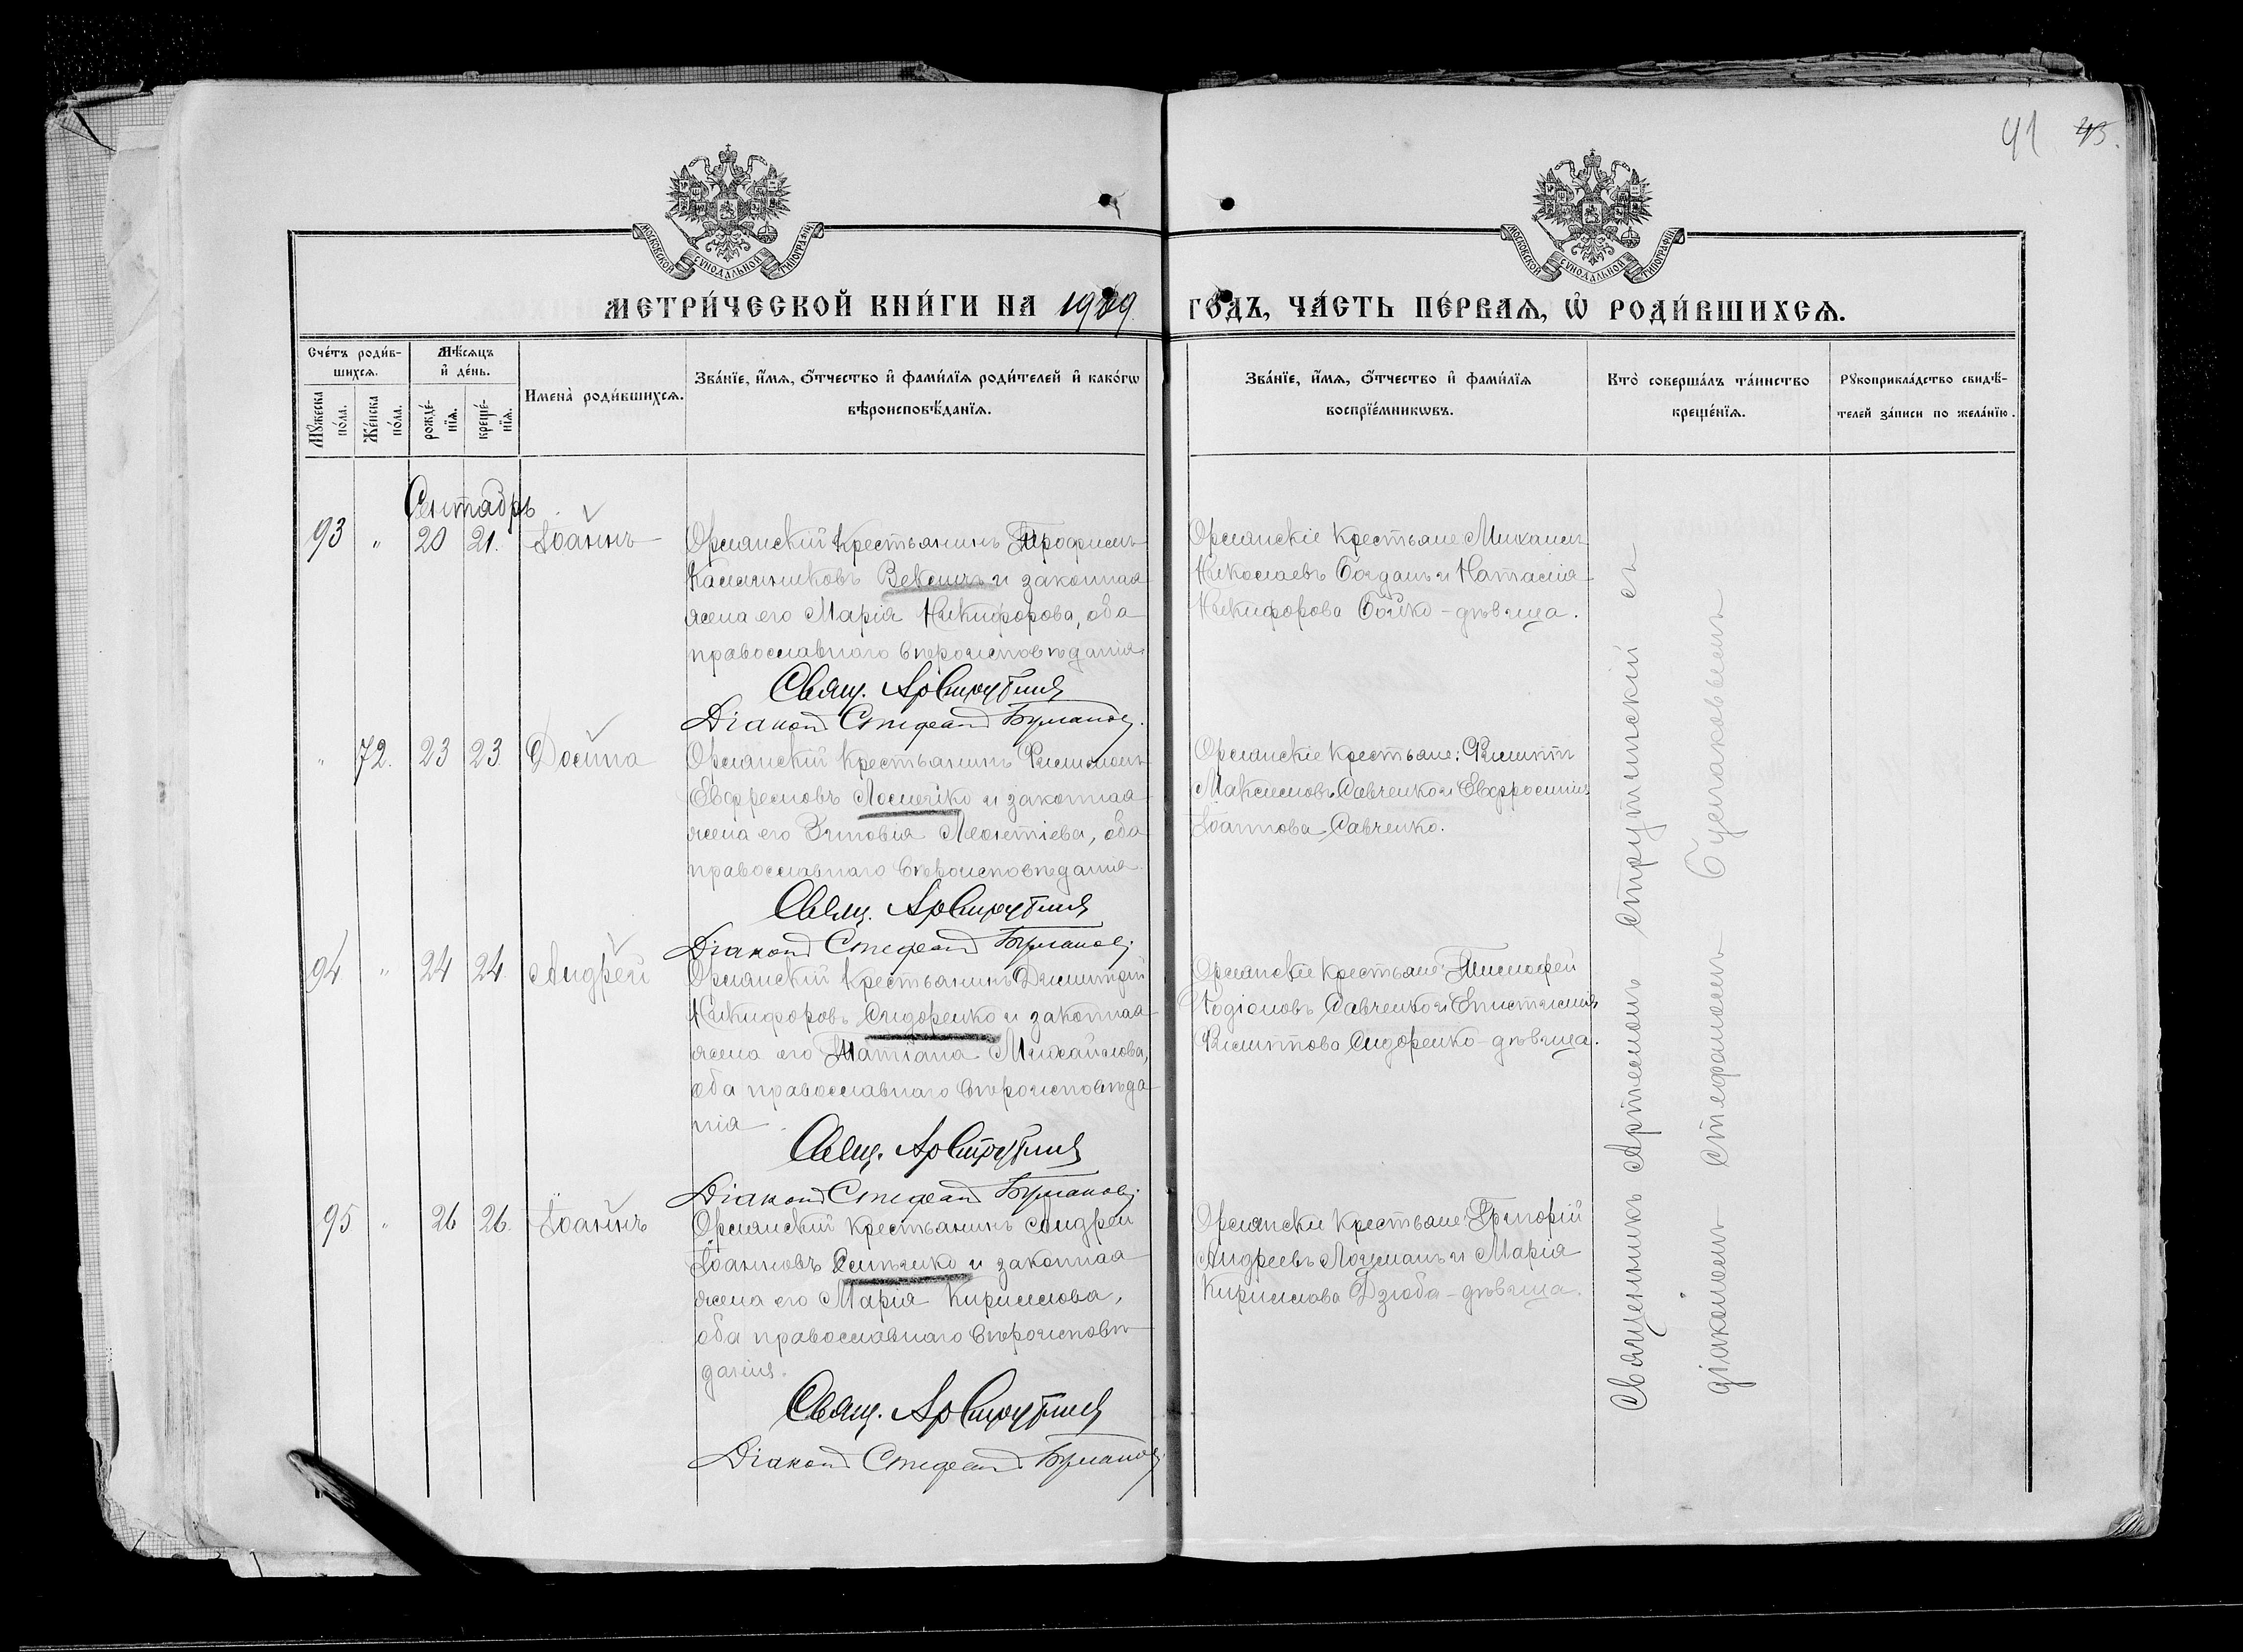 41 43.
МОСКОВСКОЙ СѴНОДАЛЬНОЙ ТИПОГРАФІИ
МОСКОВСКОЙ СѴНОДАЛЬНОЙ ТИПОГРАФІИ
МЕТРИ́ЧЕСКОЙ КНИ́ГИ НА 1909 ГО́ДЪ, ЧА́СТЬ ПЕ́РВАѦ, Ѡ҆ РОДИ́ВШИХСѦ.
Сче́тъ роди́в-
шихсѧ.
Мꙋ́жеска по́ла.
Же́нска по́ла.
Мѣ́сѧцъ
и҆ де́нь.
рожде́-
нїѧ.
креще́-
нїѧ.
Имена̀ роди́вшихсѧ.
Зва́нїе, и҆́мѧ, ѻ҆́тчество и҆ фами́лїѧ роди́телей и҆ како́гѡ
вѣроисповѣ́данїѧ.
Зва́нїе, и҆́мѧ, ѻ҆́тчество и҆ фами́лїѧ
воспрїе́мникѡвъ.
Кто̀ соверша́лъ та́инство
креще́нїѧ.
Рꙋкоприкла́дство свидѣ́-
телей за́писи по жела́нїю.
Сентябрь
93 " 20 21. Іоаннъ
Орлянскій крестьянинъ Трофимъ
Калинниковъ Векличъ и законная
жена его Марія Никифорова, оба
православнаго вѣроисповѣданія.
Свящ. Ар Струтинск
Діаконъ Стефанъ Буглаков.
Орлянскіе крестьяне Михаилъ
Николаевъ Богданъ и Наталія
Никифорова Бойко - дѣвица.
" 72. 23 23. Досита
Орлянскій крестьянинъ Филимонъ
Евфремовъ и законная
жена его Зиновія Леонтіева, оба
православнаго вѣроисповѣданія.
Свящ. Ар Струтинск
Діаконъ Стефанъ Буглаков.
Орлянскіе крестьяне: Филиппъ
Максимовъ Савченко и Евфросинія
Іоаннова Савченко.
94 " 24 24. Андрей
Орлянскій крестьянинъ Димитрій
Никифоровъ Сидоренко и законная
жена его Татіана Михайлова,
оба православнаго вѣроисповѣда
нія.
Свящ. Ар Струтинск
Діаконъ Стефанъ Буглаков.
Орлянскіе крестьяне: Тимофей
Родіоновъ Савченко и Епистимія
Филиппова Сидоренко - дѣвица.
95 " 26 26. Іоаннъ
Орлянскій крестьянинъ Андрей
Іоанновъ и законная
жена его Марія Кириллова,
оба православнаго вѣроисповѣ
данія.
Свящ. Ар Струтинск
Діаконъ Стефанъ Буглаков.
Орлянскіе крестьяне: Григорій
Андреевъ Лоцманъ и Марія
Кириллова Дзюба - дѣвица.
Священникъ Артемонъ Струтинскій съ
діакономъ Стефаномъ Буглаковымъ